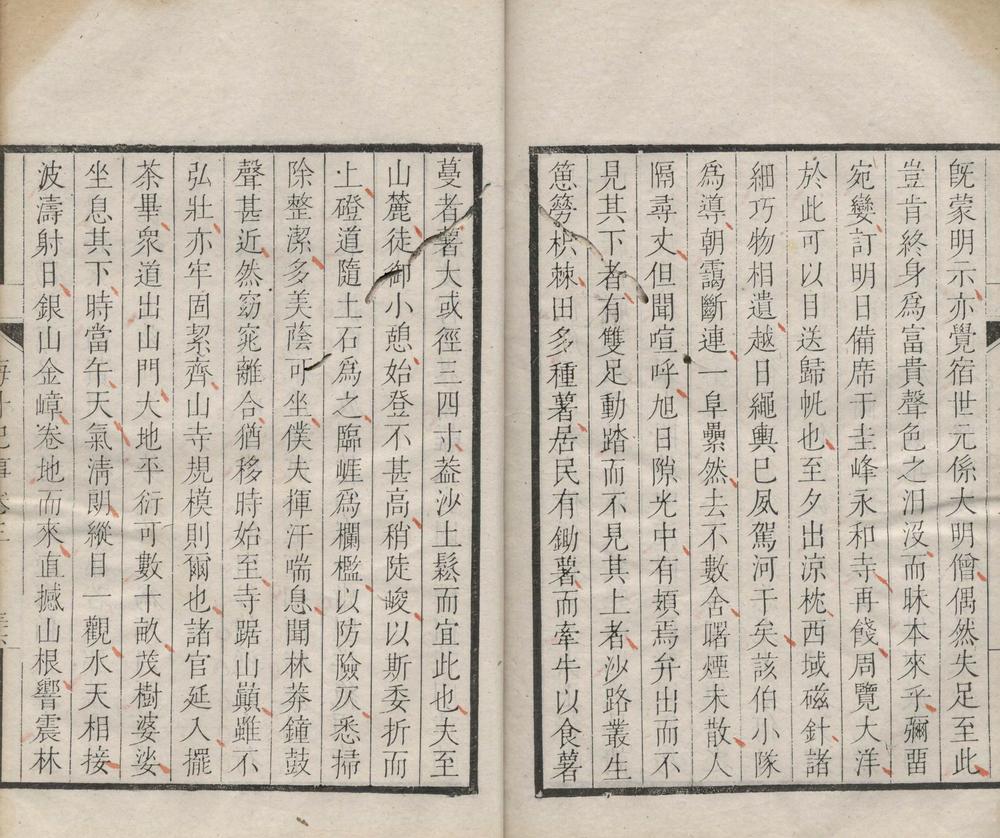 既蒙明示亦覺宿世元係大明僧偶然失足至此
豈肯終身爲富貴聲色之汨沒而昧本來乎彌留
宛孌訂明日備席于圭峰永和寺再餞周覽大洋
於此可以目送歸帆也至夕出涼枕西域磁針諸
細巧物相遺越日繩輿已夙駕河干矣該伯小隊
爲導朝靄斷連一阜纍然去不數舍曙煙未散人
隔尋丈但聞喧呼旭日隙光中有頍焉弁出而不
見其下者有雙足動踏而不見其上者沙路叢生
箽簩枳棘田多種薯居民有鋤薯而牽牛以食薯
蔓者薯大或徑三四寸葢沙土鬆而宜此也夫至
山麓徒御小憩始登不甚高稍陡峻以斯委折而
上磴道隨土石爲之臨崕爲欄檻以防險仄悉掃
除整潔多美蔭可坐僕夫揮汗喘息聞林莽鐘鼓
聲甚近然窈窕離合猶移時始至寺踞山巔雖不
弘壯亦牢固潔齊山寺規模則爾也諸官延入擺
茶畢衆道出山門大地平衍可數十畝茂樹婆娑
坐息其下時當午天氣淸朗縱目一觀水天相接
波濤射日銀山金嶂卷地而來直撼山根響震林